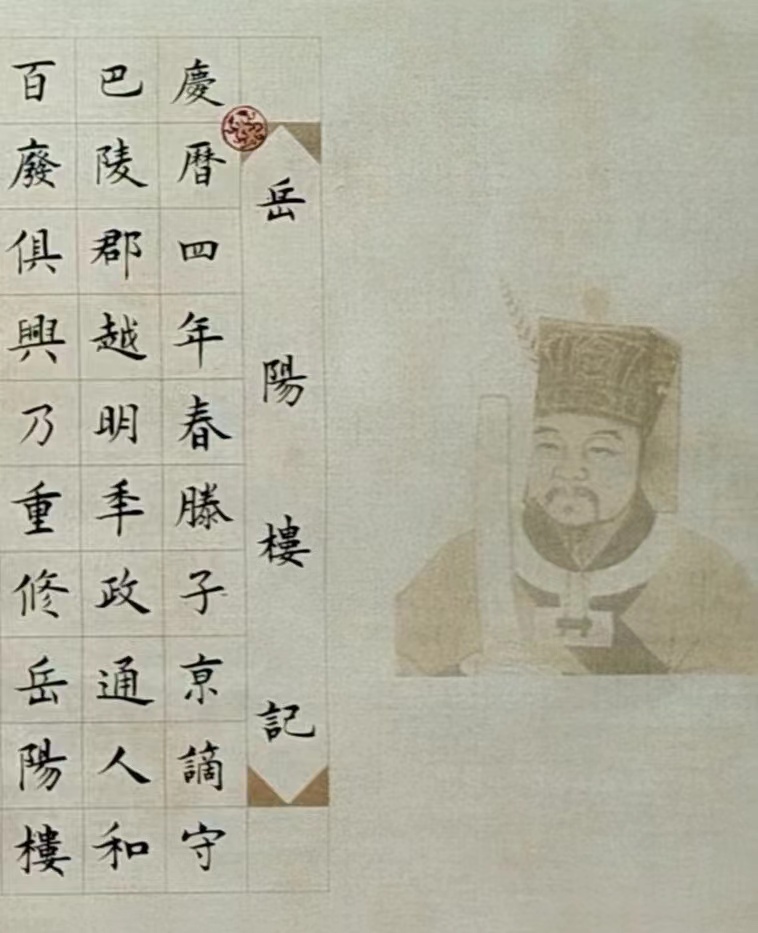 岳陽樓記
慶曆四年春滕子京謫守
巴陵郡越明秊政通人和
百廢俱興乃重修岳陽樓